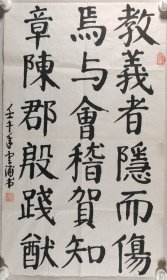 教義者隱而傷
焉与會稽賀知
章陳郡殷踐猷
壬午年雲浦书